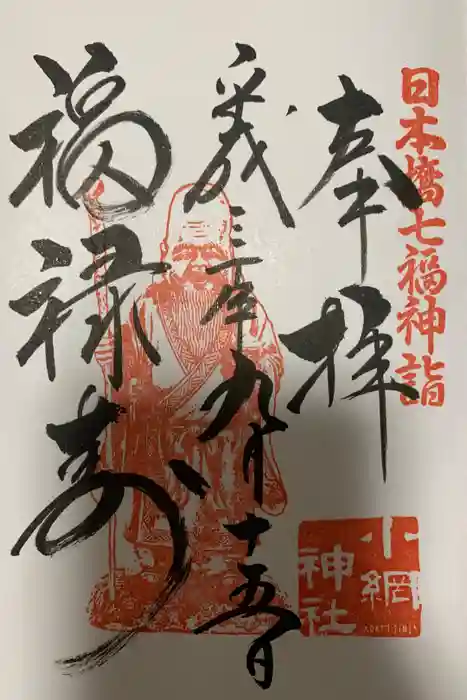 日本橋七福神詣
奉拝
平成三十年九月十五日
福禄寿
小網
神社